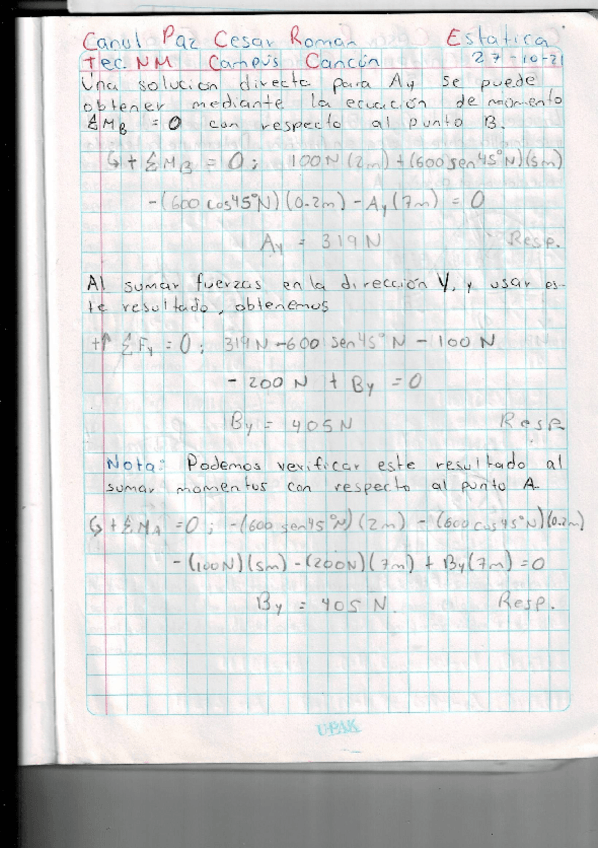 Canul Paz Cesar Roman Estatica
Tec. NM Campus Cancún 27-10-21
Una solucion directa para Ay se puede
obtener mediante la ecuación de momento
ΣMB = 0 con respecto al punto B.
↳ + ΣMB = 0; 100N(2m) + (600 sen45°N)(5m)
-(600 cos45°N)(0.2m) - Ay(7m) = 0
Ay = 319 N Resp.
Al sumar fuerzas en la dirección Y, y usar es-
te resultado, obtenemos
+↑ ΣFy = 0; 319N - 600 sen45°N - 100 N
- 200 N + By = 0
By = 405 N Resp.
Nota: Podemos verificar este resultado al
sumar momentos con respecto al punto A.
↳ + ΣMA = 0; -(600 sen45°N)(2m) - (600 cos45°N)(0.2m)
-(100N)(5m) - (200N)(7m) + By(7m) = 0
By = 405 N. Resp.
UPAK